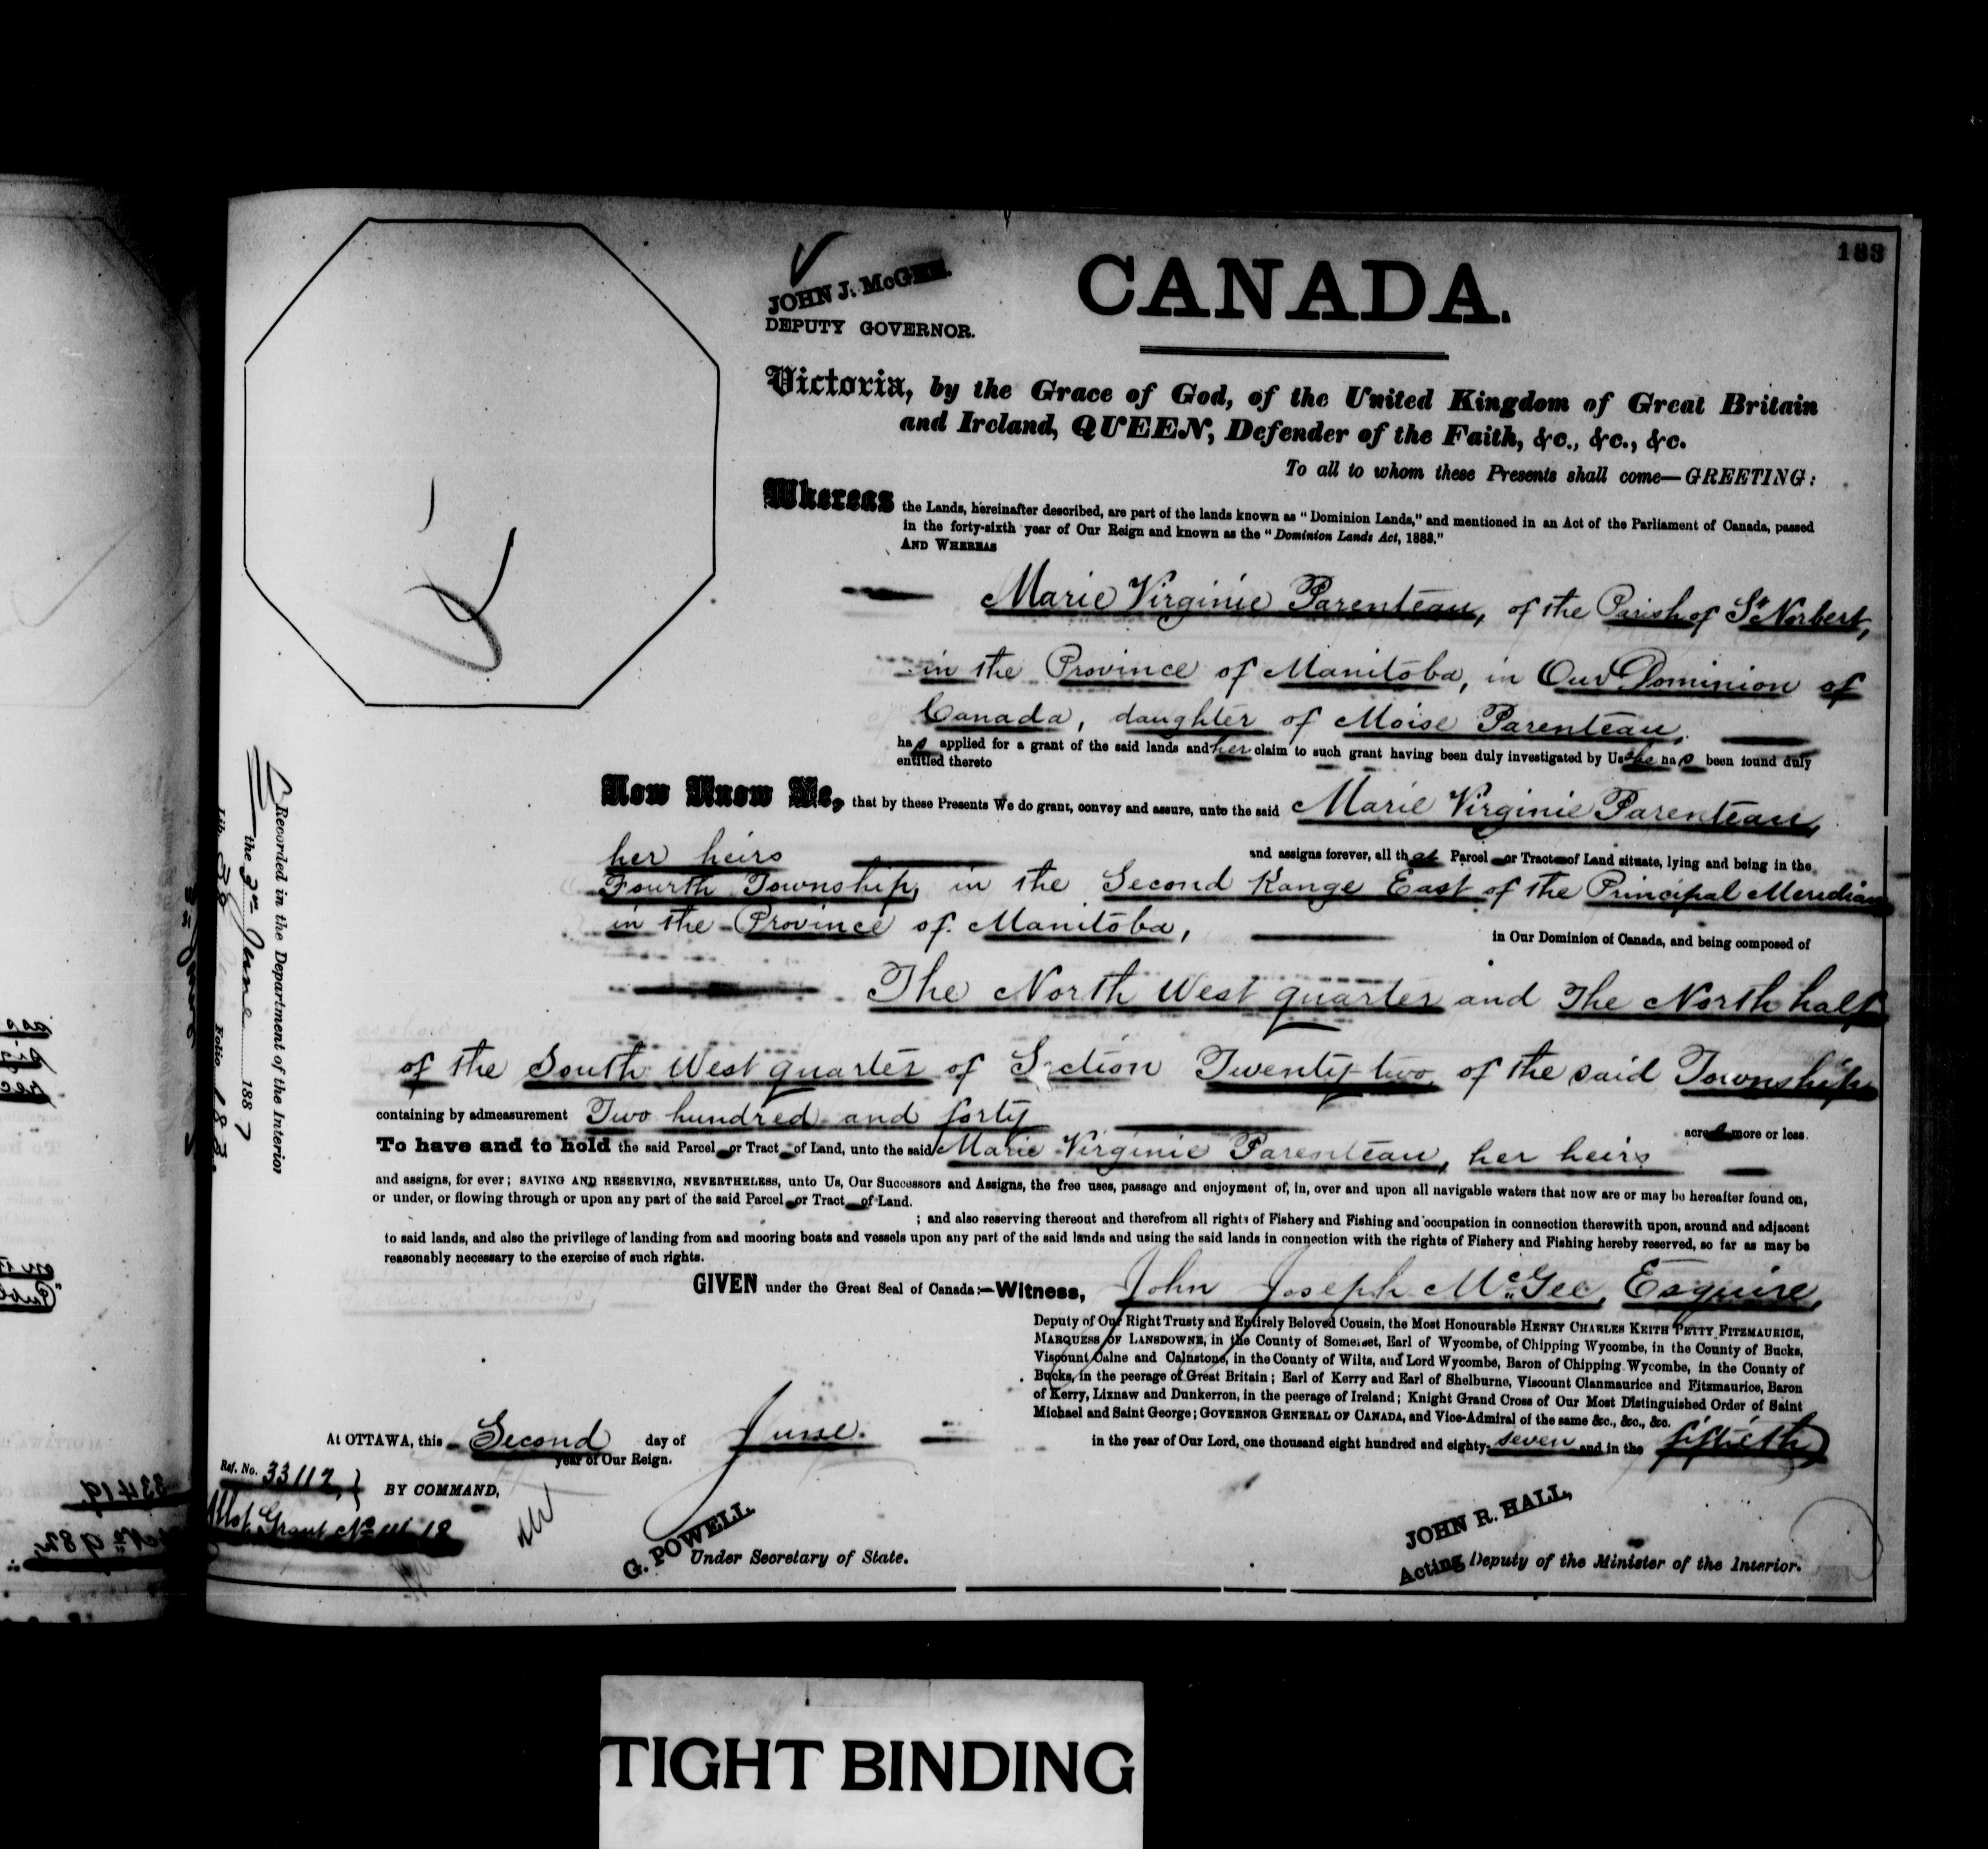 183
JOHN J. McGEE.
DEPUTY GOVERNOR.
CANADA.
Victoria, by the Grace of God, of the United Kingdom of Great Britain
and Ireland, QUEEN, Defender of the Faith, &c., &c., &c.
To all to whom these Presents shall come—GREETING:
Whereas the Lands, hereinafter described, are part of the lands known as "Dominion Lands," and mentioned in an Act of the Parliament of Canada, passed
in the forty-sixth year of Our Reign and known as the "Dominion Lands Act, 1883."
AND WHEREAS
Marie Virginie Parenteau, of the Parish of St Norbert,
in the Province of Manitoba, in Our Dominion of
Canada, daughter of Moise Parenteau,
has applied for a grant of the said lands and her claim to such grant having been duly investigated by Us she has been found duly
entitled thereto
Now Know Ye, that by these Presents We do grant, convey and assure, unto the said Marie Virginie Parenteau,
her heirs and assigns forever, all that Parcel or Tract of Land situate, lying and being in the
Fourth Township, in the Second Range East of the Principal Meridian
in the Province of Manitoba, in Our Dominion of Canada, and being composed of
The North West quarter and The North half
of the South West quarter of Section Twenty two, of the said Township
containing by admeasurement Two hundred and forty acres more or less.
To have and to hold the said Parcel or Tract of Land, unto the said Marie Virginie Parenteau, her heirs
and assigns, for ever; SAVING AND RESERVING, NEVERTHELESS, unto Us, Our Successors and Assigns, the free uses, passage and enjoyment of, in, over and upon all navigable waters that now are or may be hereafter found on,
or under, or flowing through or upon any part of the said Parcel or Tract of Land.
; and also reserving thereout and therefrom all rights of Fishery and Fishing and occupation in connection therewith upon, around and adjacent
to said lands, and also the privilege of landing from and mooring boats and vessels upon any part of the said lands and using the said lands in connection with the rights of Fishery and Fishing hereby reserved, so far as may be
reasonably necessary to the exercise of such rights.
GIVEN under the Great Seal of Canada:—Witness, John Joseph McGee, Esquire,
Deputy of Our Right Trusty and Entirely Beloved Cousin, the Most Honourable HENRY CHARLES KEITH PETTY FITZMAURICE,
MARQUESS OF LANSDOWNE, in the County of Somerset, Earl of Wycombe, of Chipping Wycombe, in the County of Bucks,
Viscount Calne and Calnstone, in the County of Wilts, and Lord Wycombe, Baron of Chipping Wycombe, in the County of
Bucks, in the peerage of Great Britain; Earl of Kerry and Earl of Shelburne, Viscount Clanmaurice and Fitzmaurice, Baron
of Kerry, Lixnaw and Dunkerron, in the peerage of Ireland; Knight Grand Cross of Our Most Distinguished Order of Saint
Michael and Saint George; GOVERNOR GENERAL OF CANADA, and Vice-Admiral of the same &c., &c., &c.
At OTTAWA, this Second day of June. in the year of Our Lord, one thousand eight hundred and eighty-seven and in the fiftieth
year of Our Reign.
Ref. No. 33112,
BY COMMAND,
G. POWELL
Under Secretary of State.
JOHN R. HALL,
Acting Deputy of the Minister of the Interior.
Recorded in the Department of the Interior
the 3rd June 1887
Lib. 38 Folio 183
TIGHT BINDING